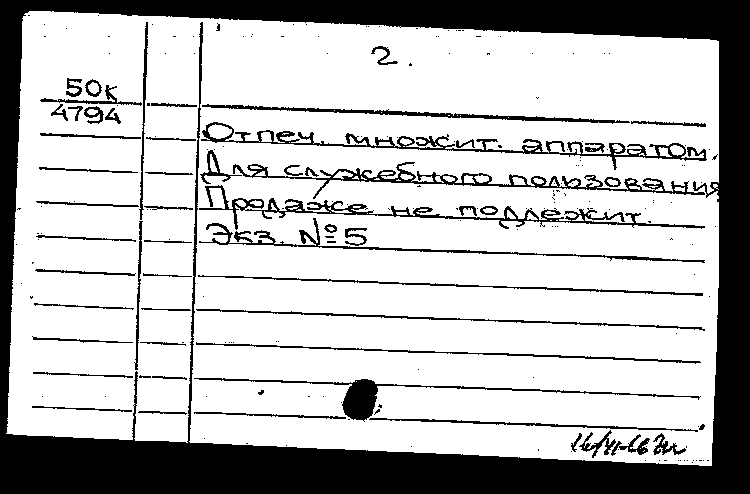 2.
50к
4794
Отпеч. множит. аппаратом.
Для служебного пользования
Продаже не подлежит.
Экз. №5